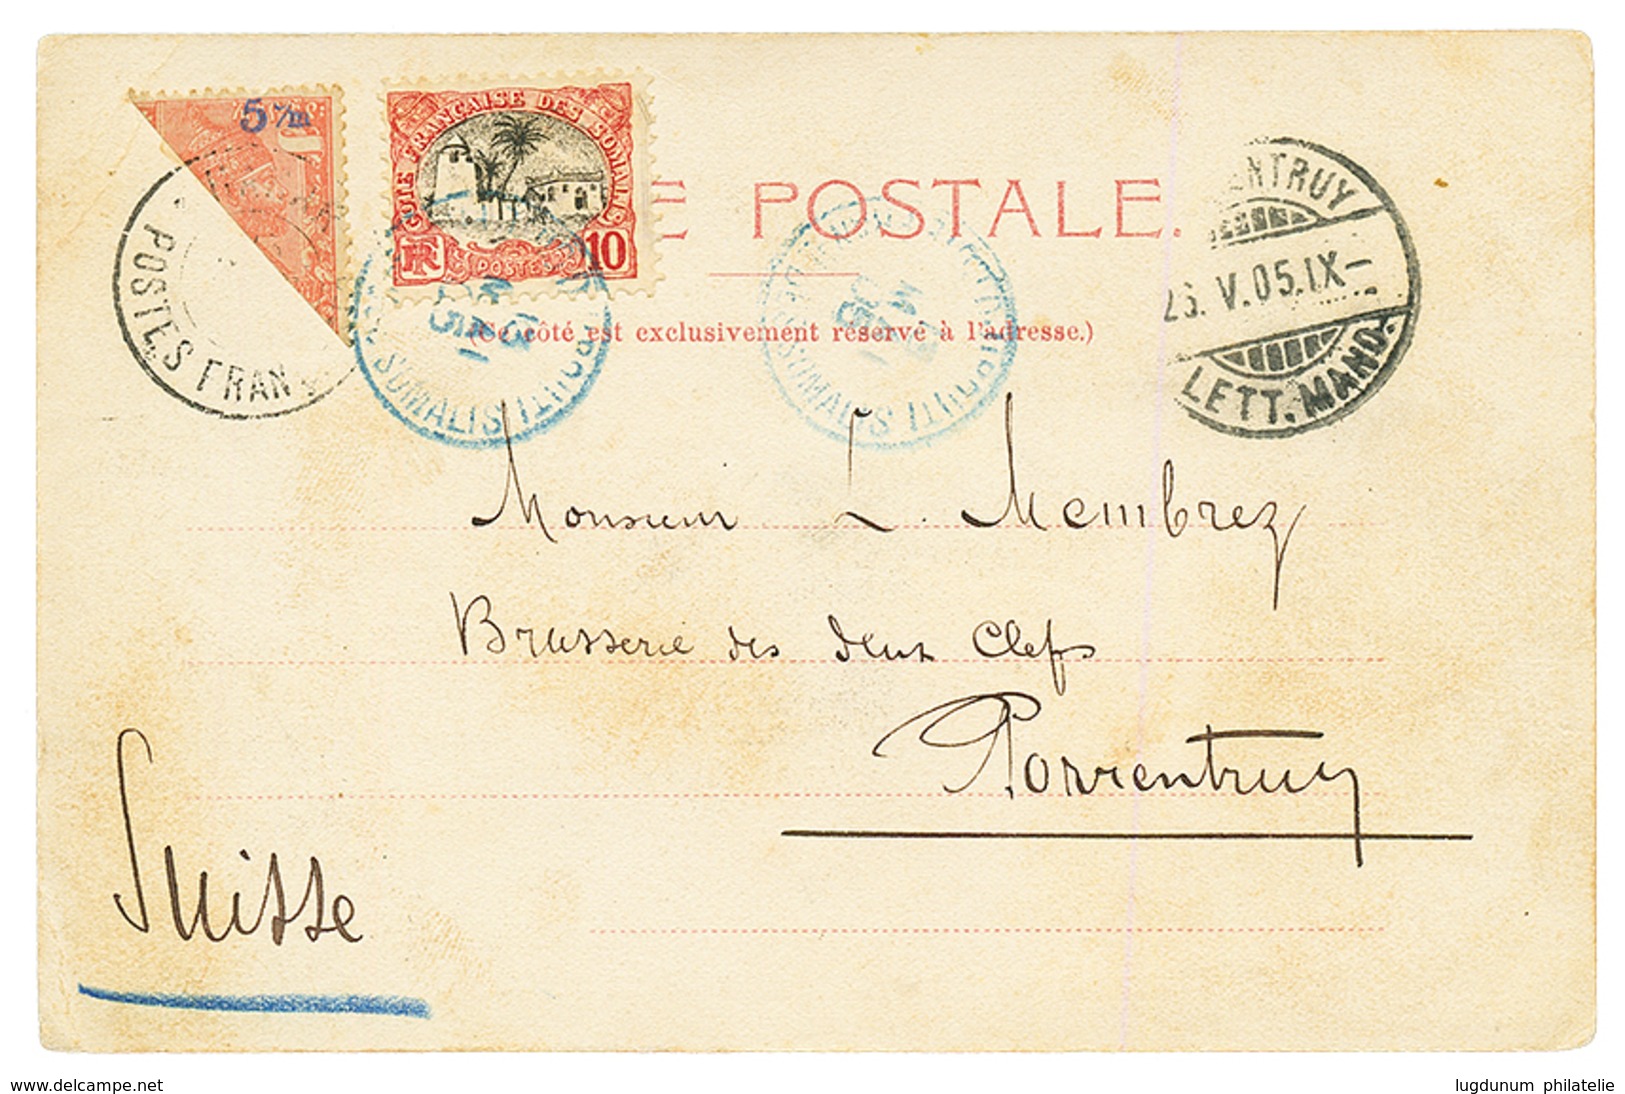 5 c/m
COTE FRANÇAISE DES SOMALIS
RF POSTES 10
POSTES FRAN
E POSTALE.
(Ce côté est exclusivement réservé à l'adresse.)
SOMALIS
DJIBOUTI
SOMALIS
DJIBOUTI
ENTRUY
26. V. 05. IX–
LETT. MAND.
Monsieur L. Membrez
Brasserie des deux Clefs
Porrentruy
Suisse
www.delcampe.net
lugdunum philatelie